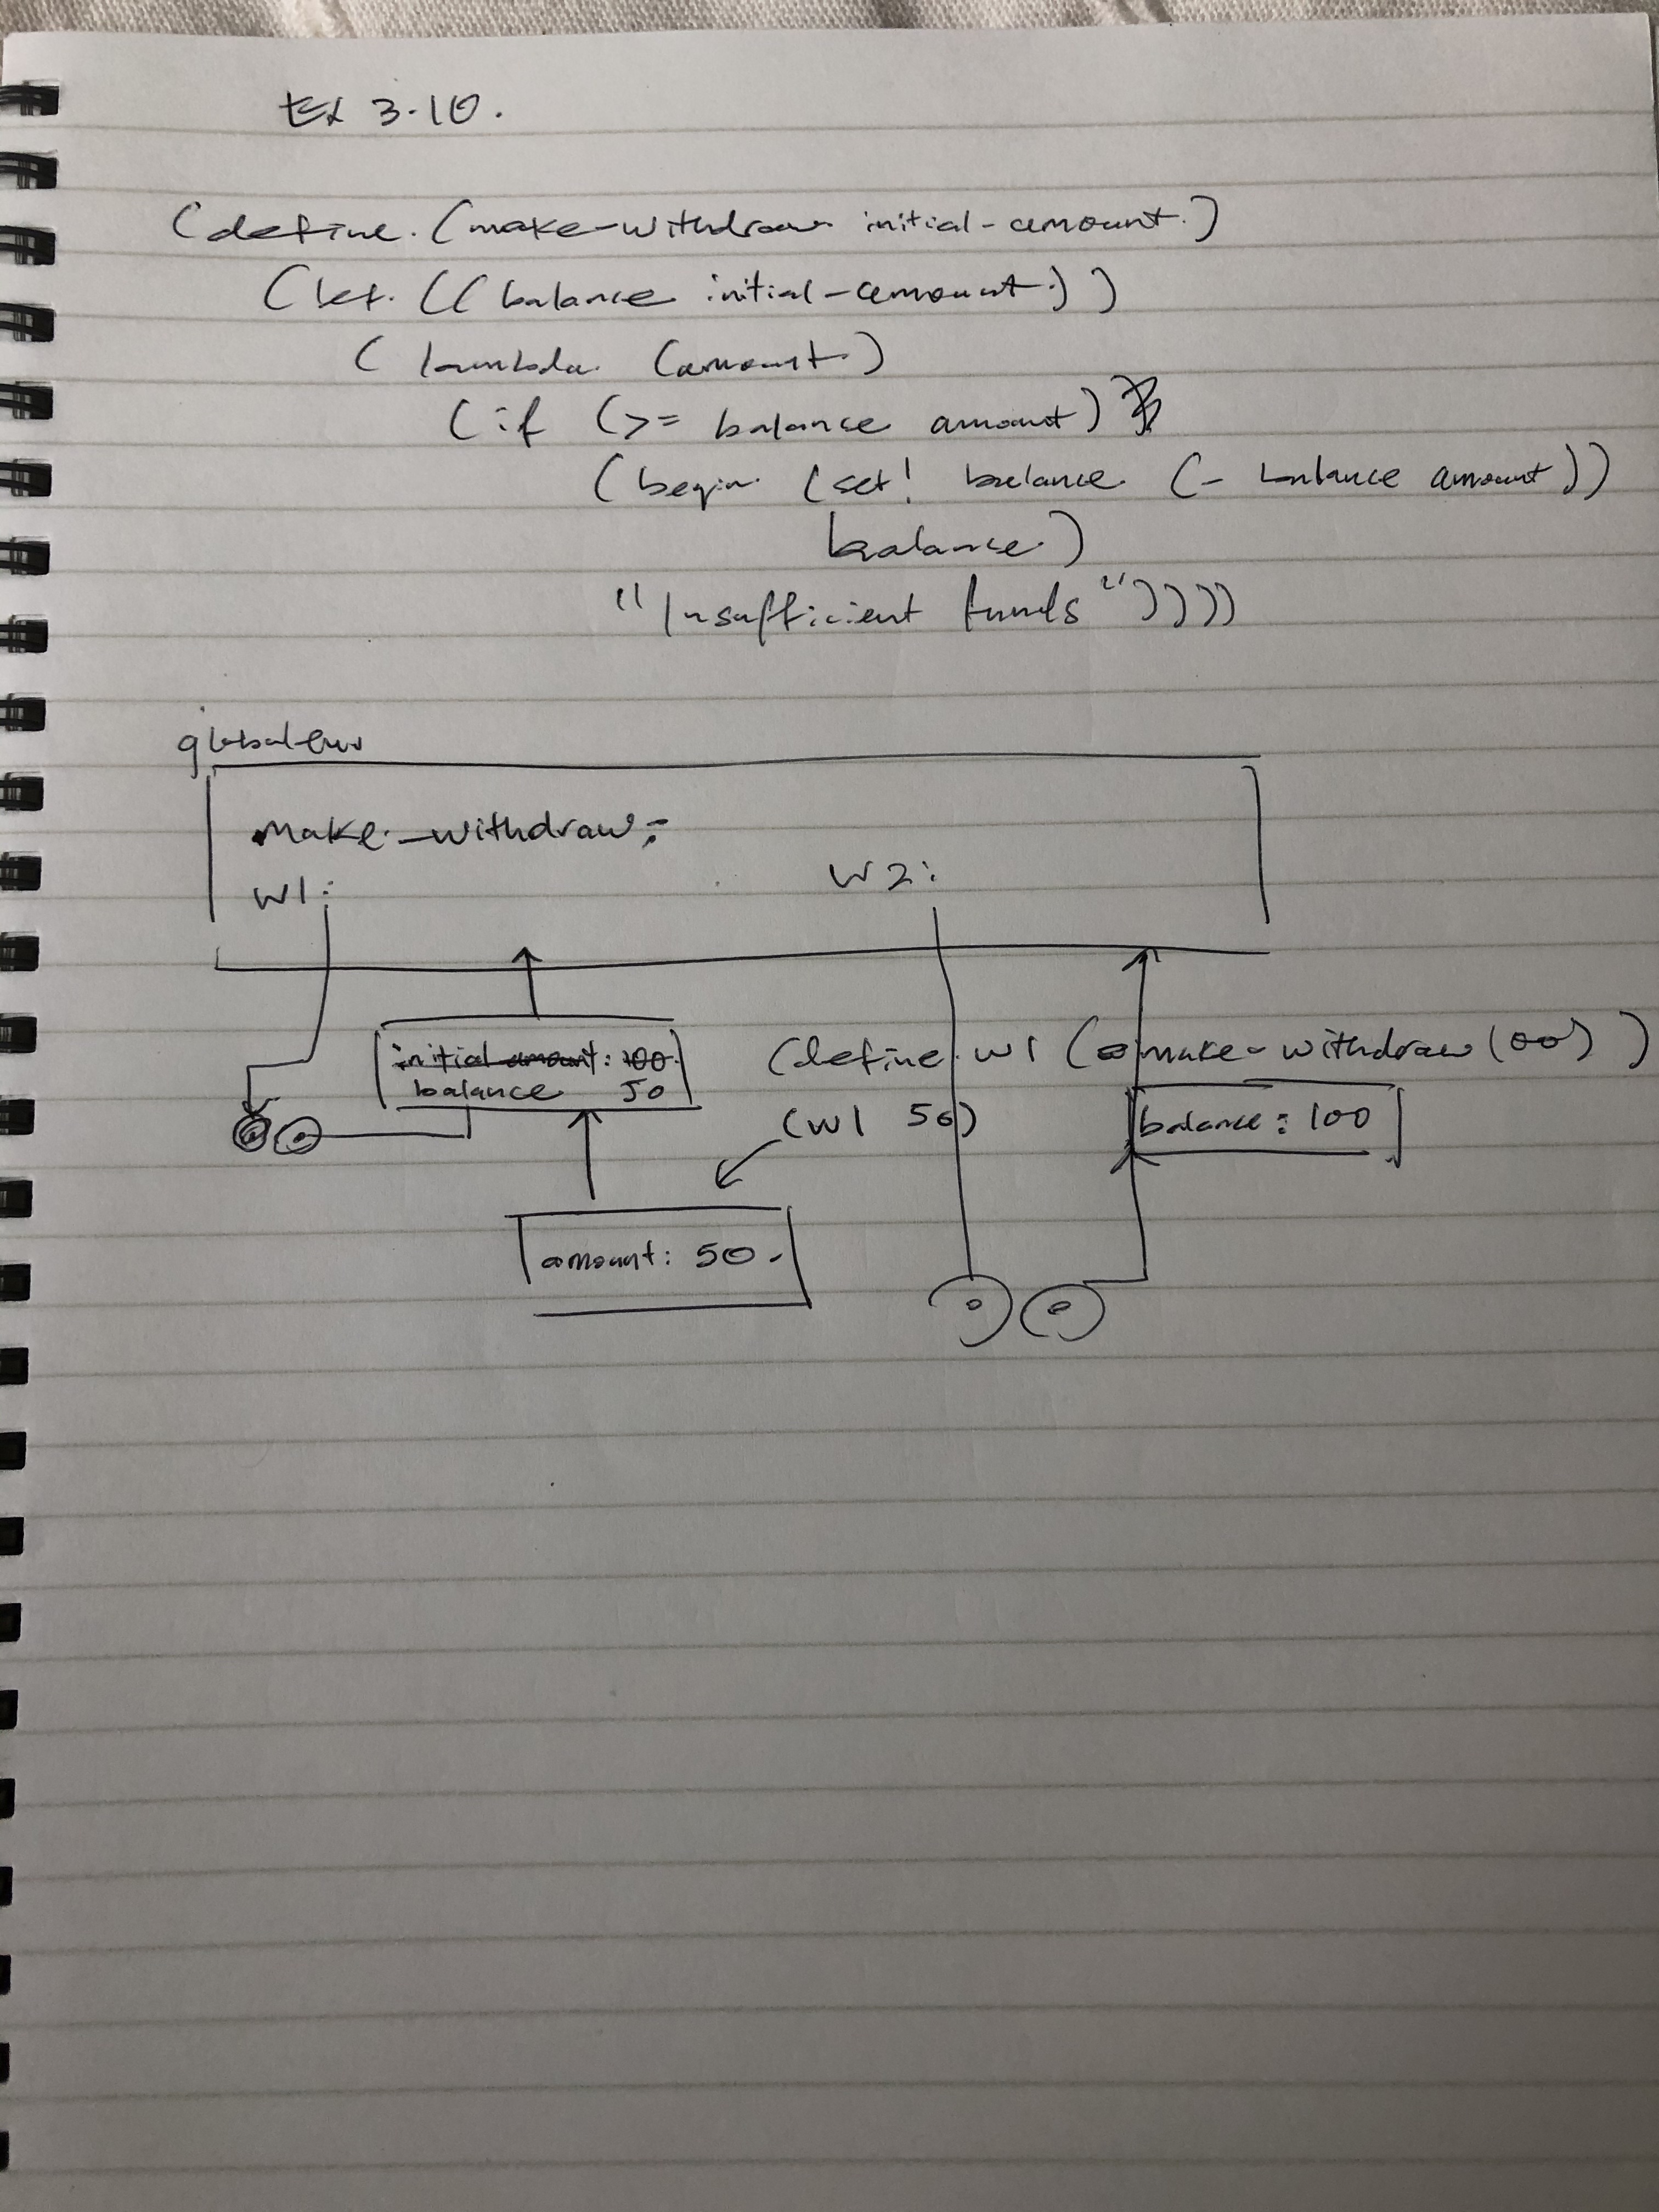 Ex 3.10.
(define (make-withdraw initial-amount)
(let ((balance initial-amount))
(lambda (amount)
(if (>= balance amount)
(begin (set! balance (- balance amount))
balance)
"Insufficient funds"))))
global env
make-withdraw:
W1:
W2:
initial amount: 100
balance 50
(define W1 (make-withdraw 100))
(W1 50)
balance: 100
amount: 50